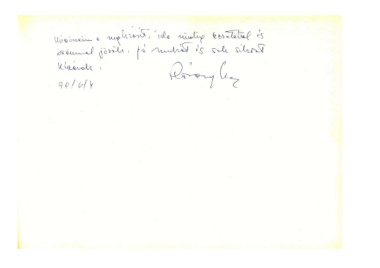 Köszönöm a meghívást, ide mindig szeretettel és
örömmel jövök. Jó munkát és sok sikert
kívánok.
90/4/4